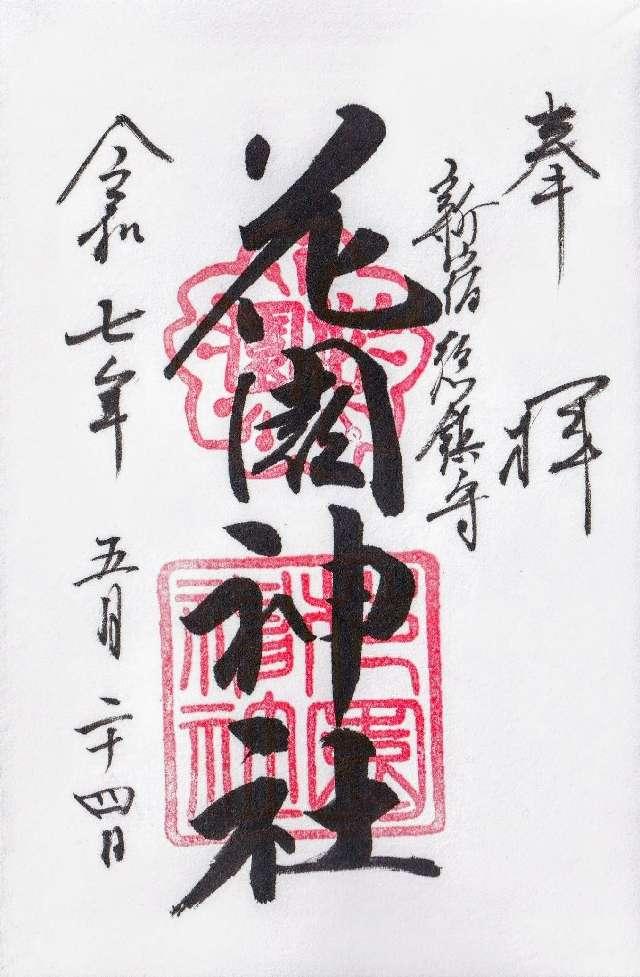 奉拝
新宿総鎮守
花園神社
令和七年五月二十四日
花園
花園神社